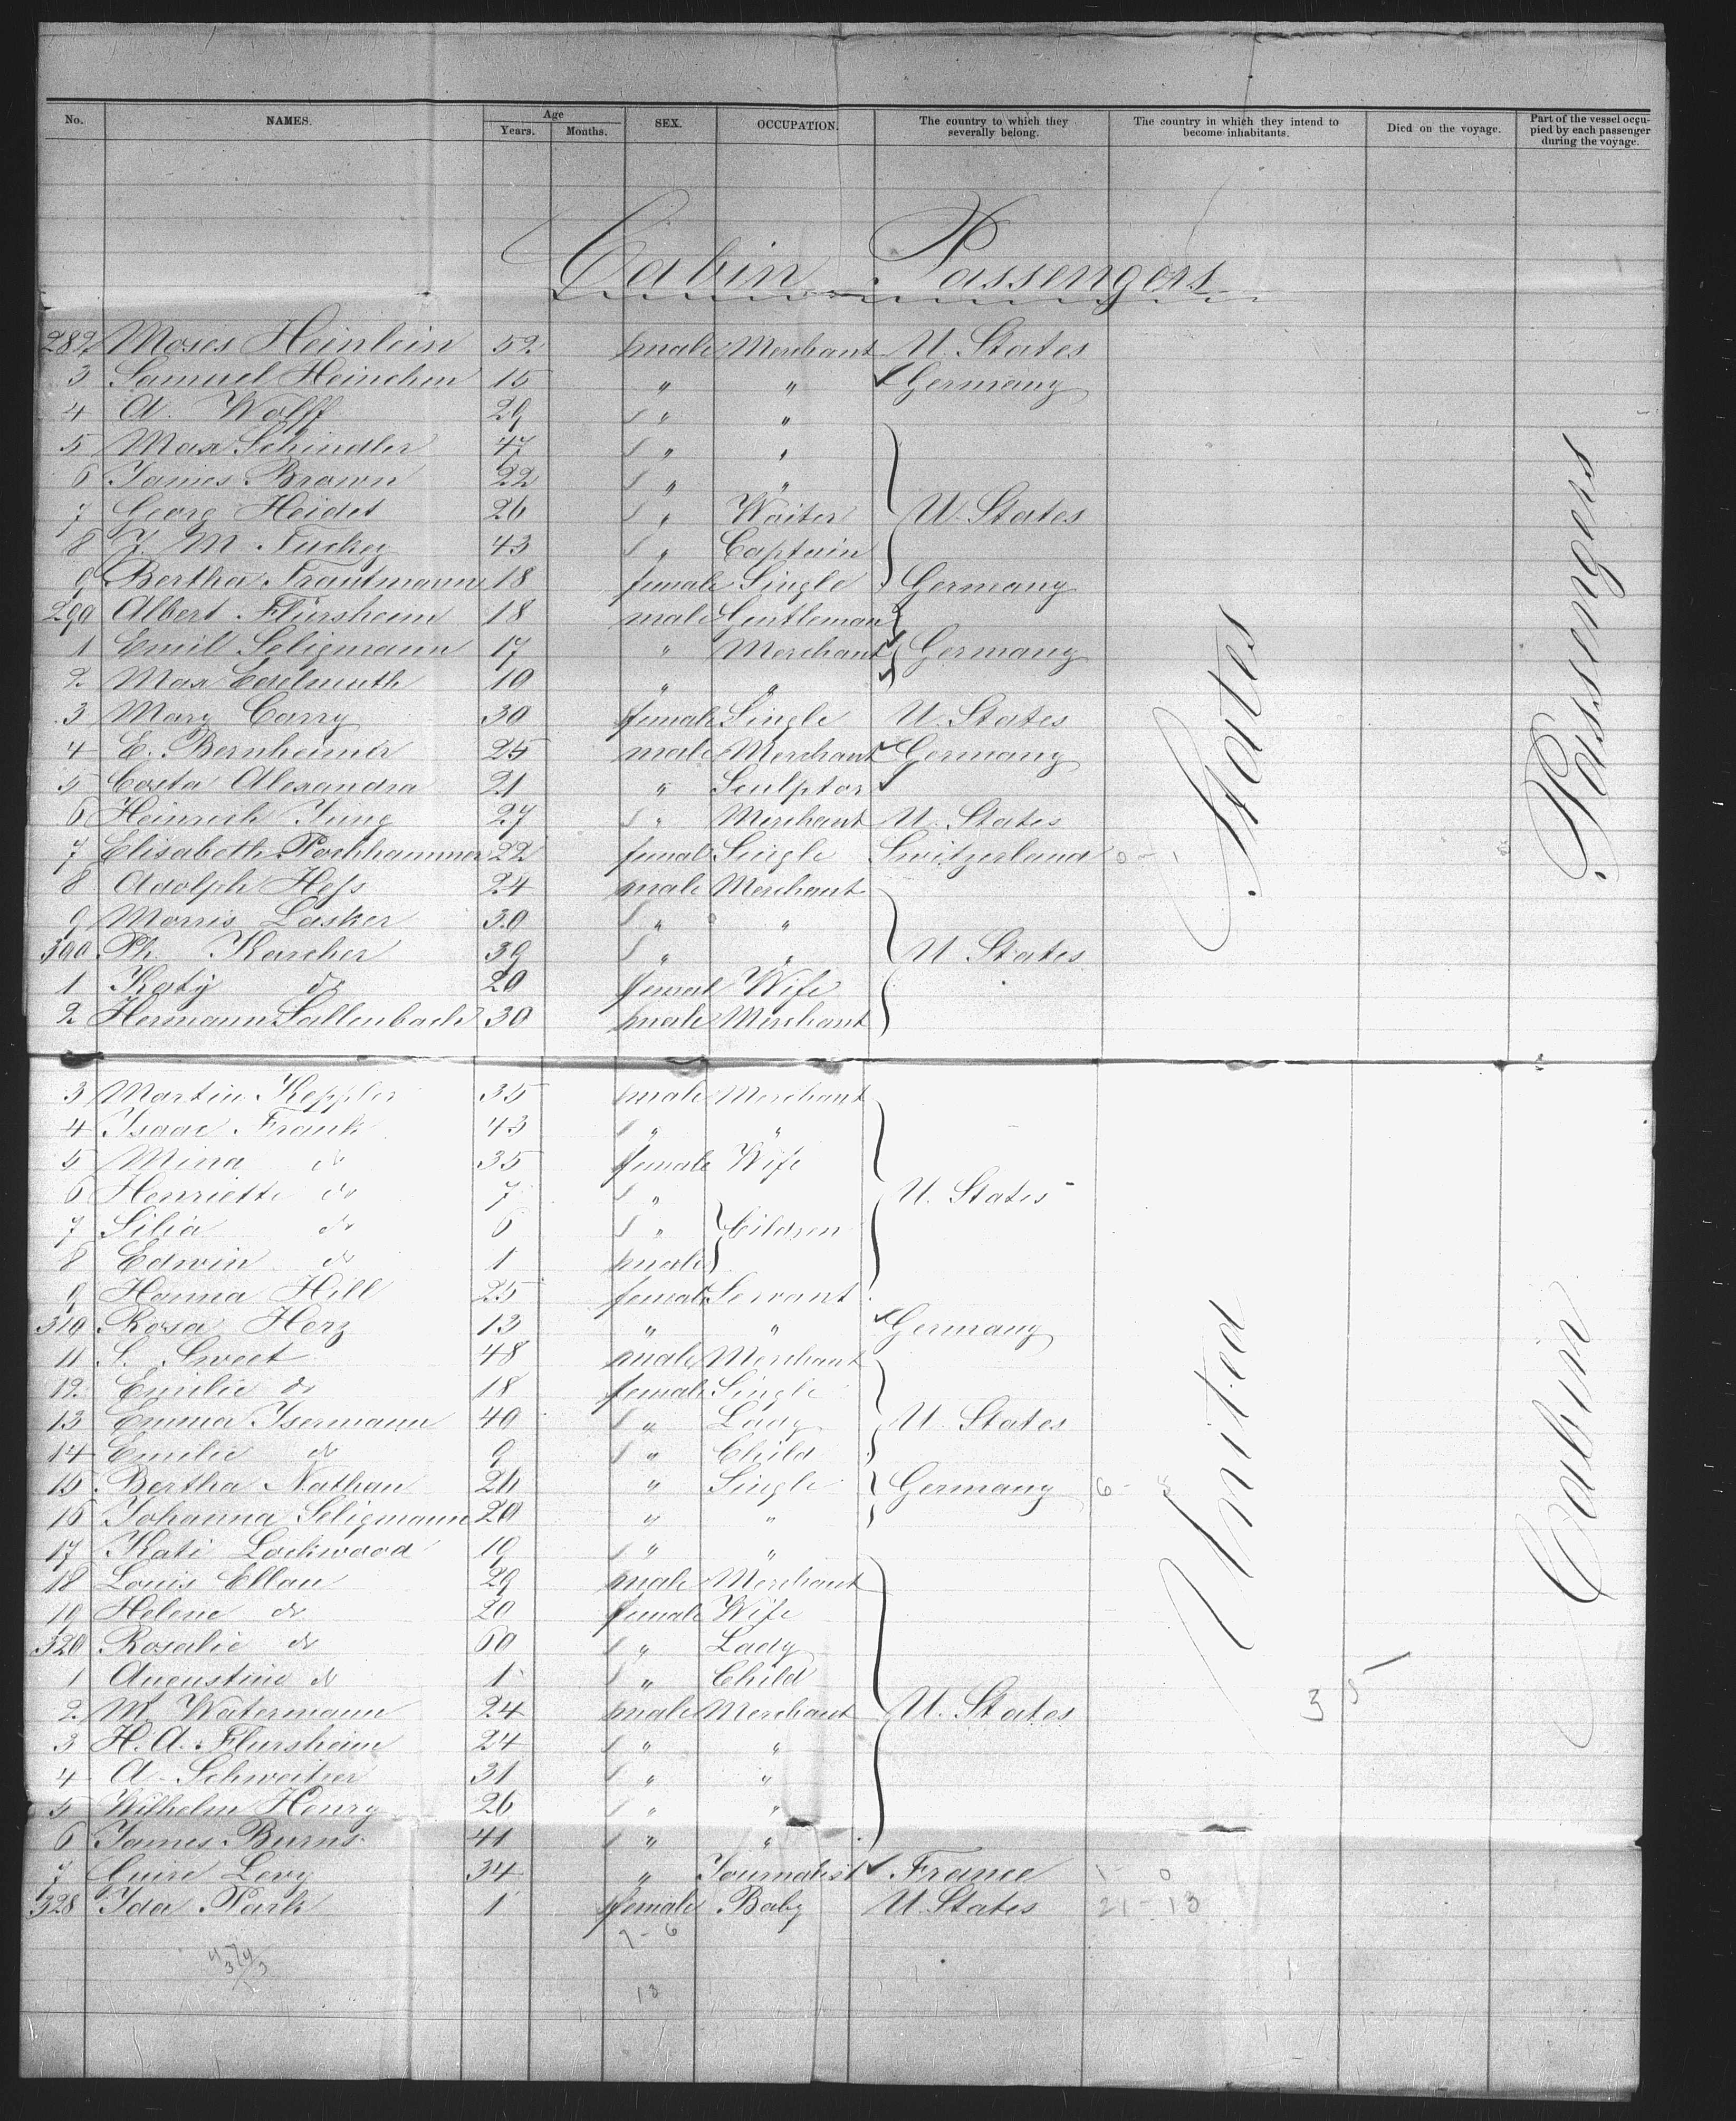 No. NAMES. Age Years. Months. SEX. OCCUPATION. The country to which they severally belong. The country in which they intend to become inhabitants. Died on the voyage. Part of the vessel occupied by each passenger during the voyage.
Cabin Passengers
282 Moses Heinlein 52 male Merchant U. States
3 Samuel Heinchen 15 " " Germany
4 A. Wolff 29 " "
5 Max Schindler 47 " "
6 James Brown 22 " "
7 Georg Heidet 26 " Waiter U. States
8 J. M. Tuckey 43 " Captain
9 Bertha Trautmann 18 female Single Germany
290 Albert Flürsheim 18 male Gentleman
1 Emil Seligmann 17 " Merchant Germany
2 Max Edelmuth 19 " "
3 Mary Carry 30 female Single U. States
4 E. Bernheimer 25 male Merchant Germany
5 Costa Alexandra 21 " Sculptor
6 Heinrich Jung 27 " Merchant U. States
7 Elisabeth Pochhammer 22 female Single Switzerland 0 - 1
8 Adolph Hess 24 male Merchant
9 Morris Lasker 30 " "
300 Ph. Karcher 39 " " U. States
1 Katy do 20 female Wife
2 Hermann Sallenbach 30 male Merchant
3 Martin Keppler 35 male Merchant
4 Isaac Frank 43 " "
5 Mina do 35 female Wife
6 Henriette do 7 " U. States
7 Silia do 6 " Cildren
8 Edwin do 1 male
9 Hanna Hill 25 female Servant
310 Rosa Herz 13 " " Germany
11 S. Sweet 48 male Merchant
12 Emilie do 18 female Single
13 Emma Isermann 40 " Lady U. States
14 Emilie do 9 " Child
15 Bertha Nathan 26 " Single Germany 6 - 8
16 Johanna Seligmann 20 " "
17 Kati Lockwood 19 " "
18 Louis Ellau 29 male Merchant
19 Helene do 20 female Wife
320 Rosalie do 60 " Lady
1 Augustine do 1 " Child
2 M. Watermann 24 male Merchant U. States
3 H. A. Flursheim 24 " "
4 A. Schweitzer 31 " "
5 Wilhelm Henry 26 " "
6 James Burns 41 " "
7 Levy 34 " Journalist France 1 - 0
328 Ida Park 1 female Baby U. States 21 - 13
7 - 6
13
United States
35
Cabin Passengers